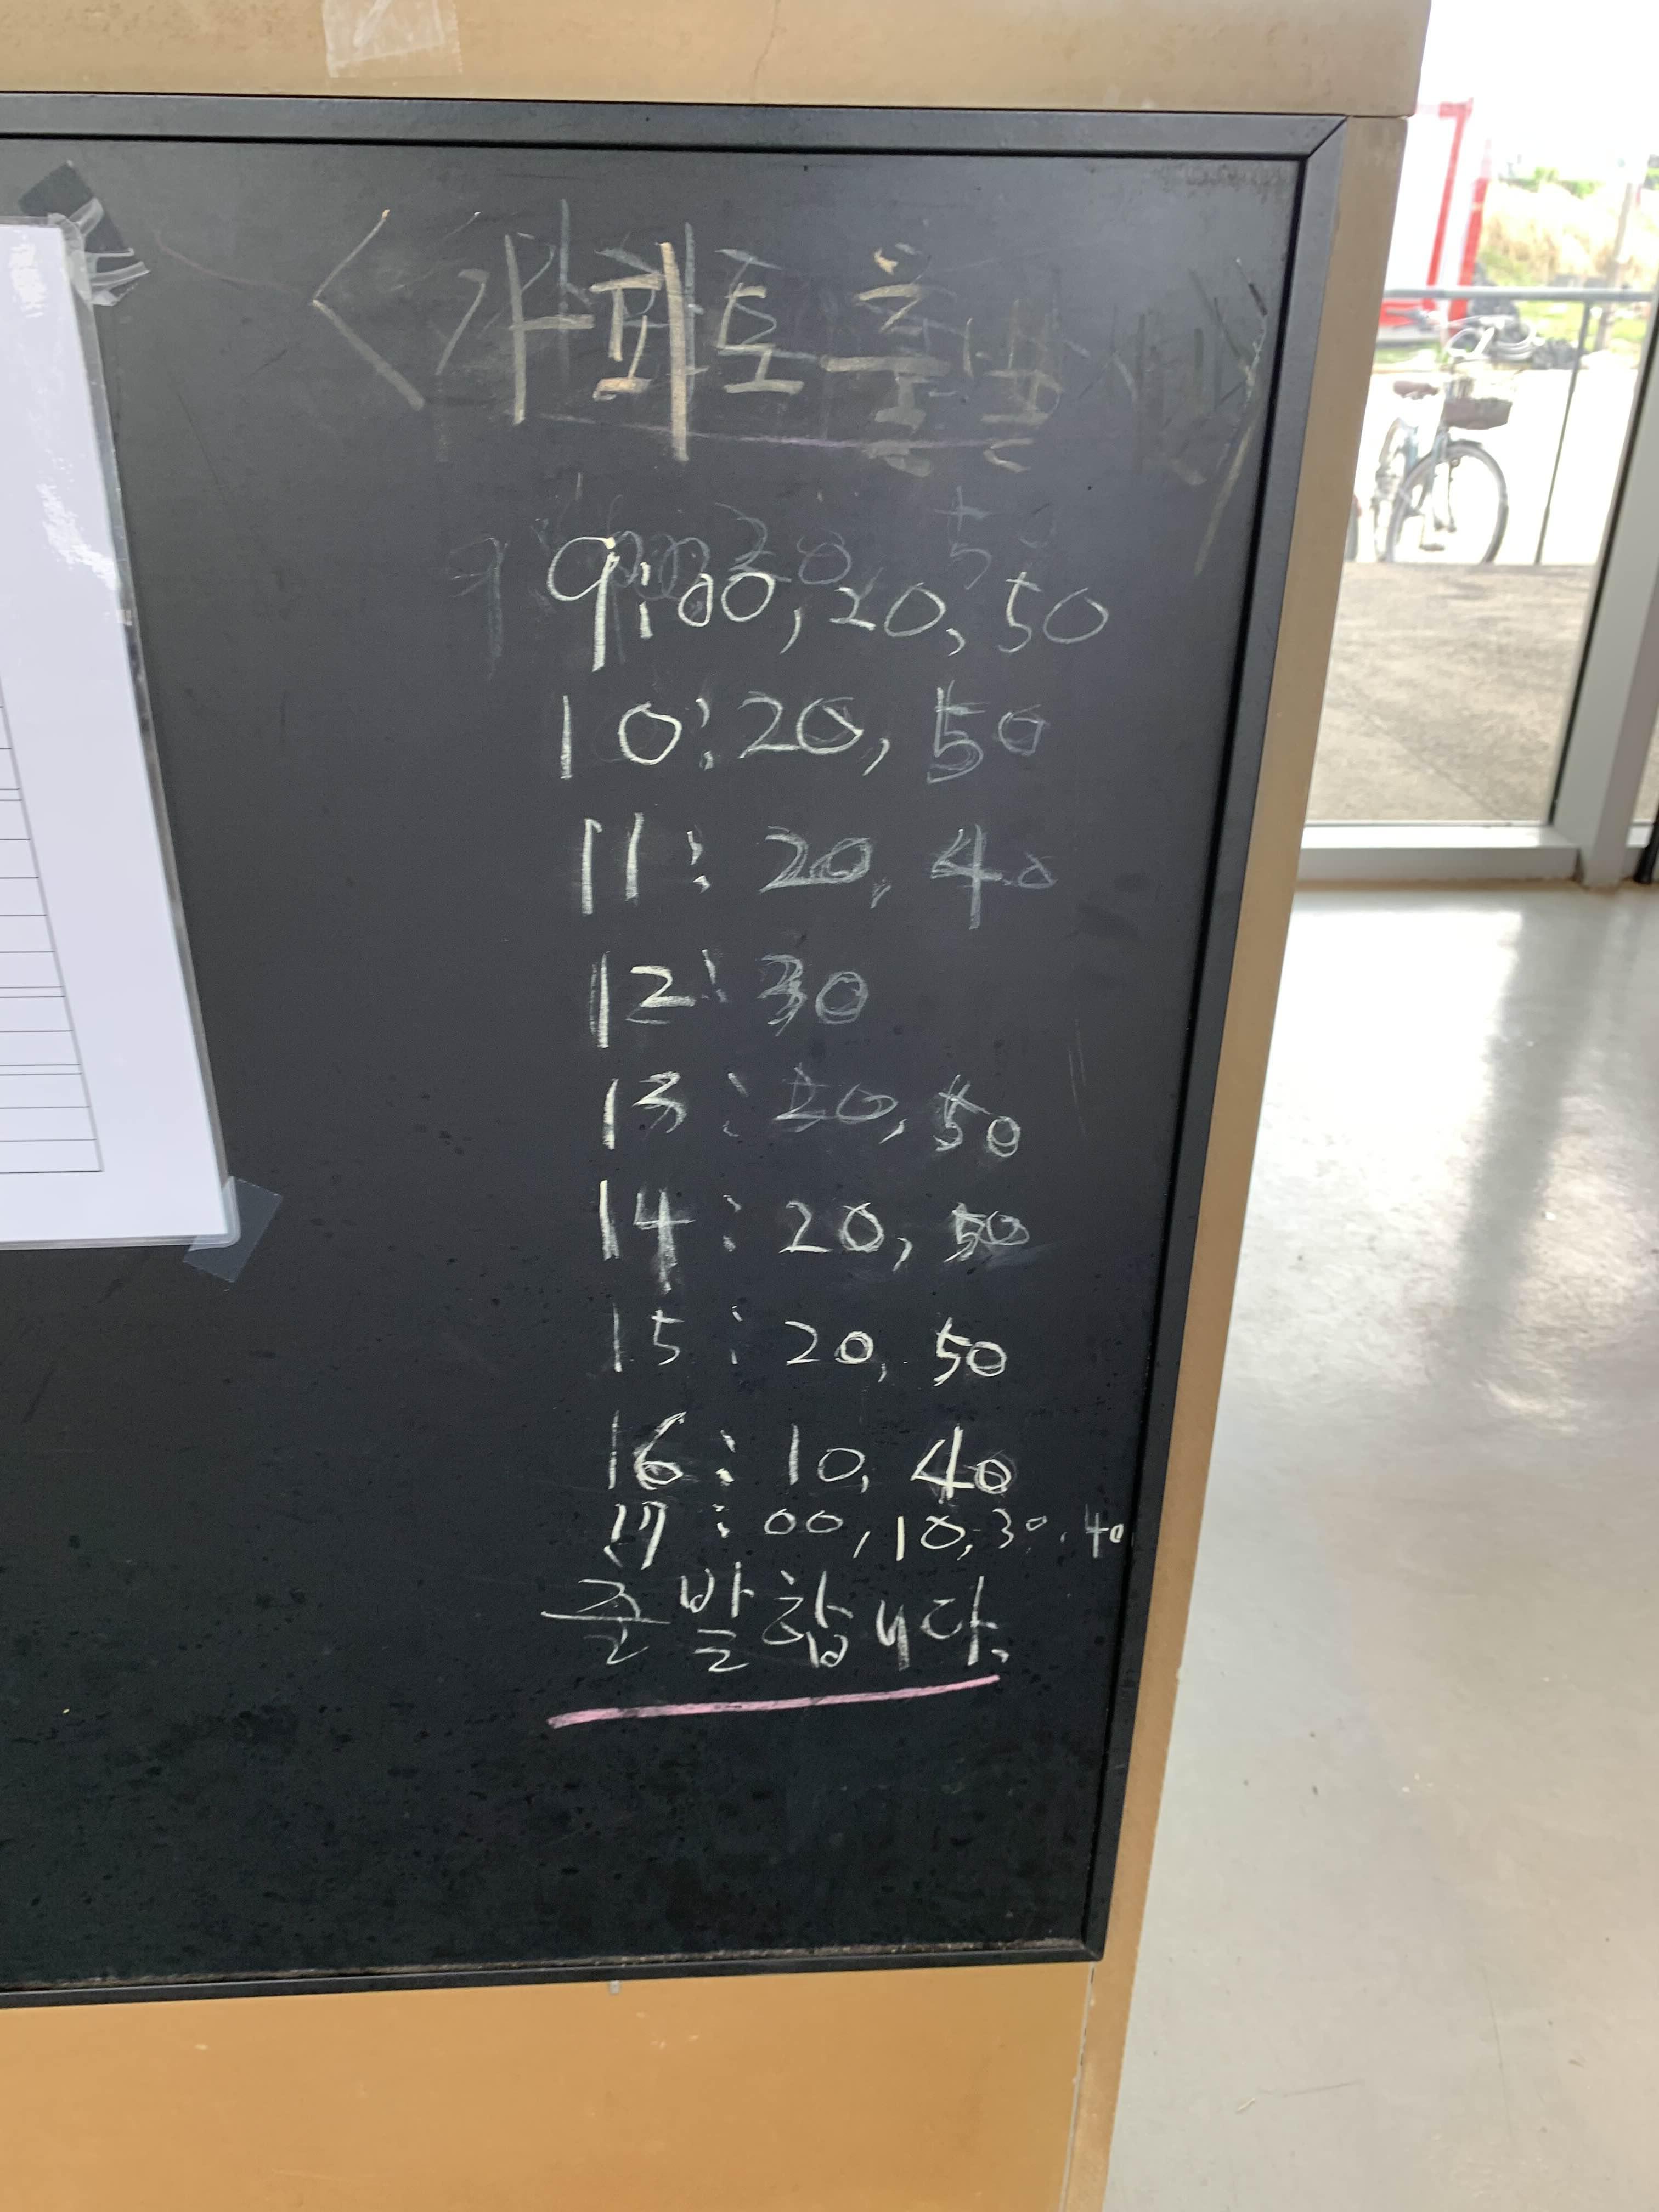 <가파도 출발>
9:00, 20, 50
10:20, 50
11:20, 40
12:30
13:20, 50
14:20, 50
15:20, 50
16:10, 40
17:00, 10, 30, 40
출발합니다.